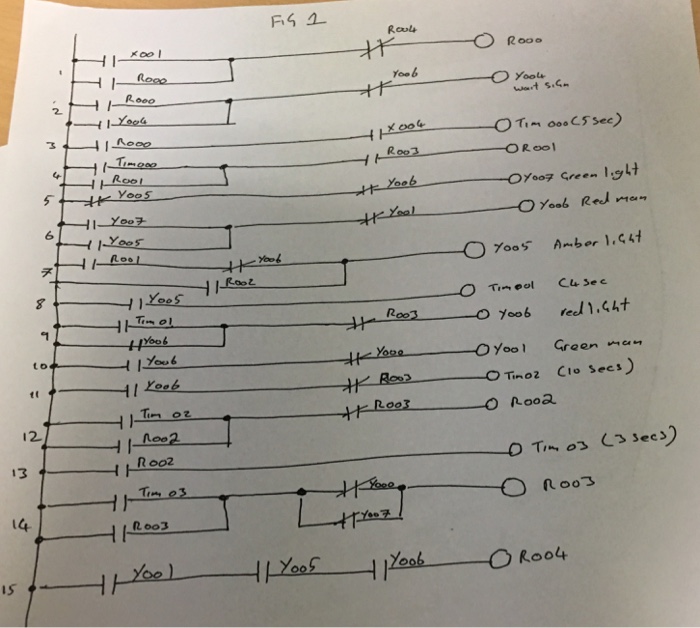 FIG 1
X001 R004 R000
1 R000
R000 Y006 Y004
wait sign
2 Y004
3 R000 X004 Tim 000 (5 sec)
Tim000 R003 R001
4 R001
5 Y005 Y006 Y007 Green light
Y007 Y001 Y006 Red man
6 Y005
7 R001 Y006 Y005 Amber light
R002
8 Y005 Tim001 (4 sec
Tim 01 R003 Y006 red light
9 Y006
10 Y006 Y000 Y001 Green man
11 Y006 R003 Tim02 (10 secs)
Tim 02 R003 R002
12 R002
13 R002 Tim 03 (3 secs)
Tim 03 Y000 R003
14 R003 Y007
15 Y001 Y005 Y006 R004